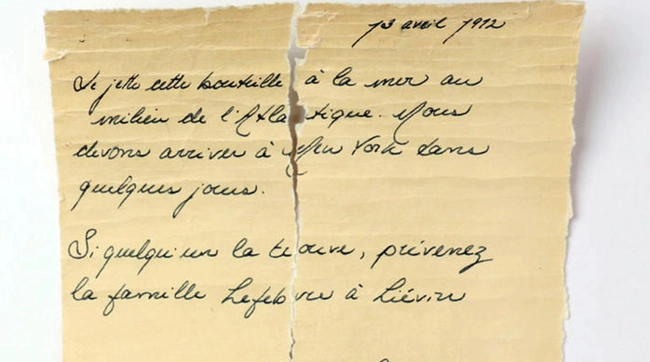 13 avril 1912
Je jette cette bouteille à la mer au
milieu de l'Atlantique. Nous
devons arriver à New York dans
quelques jours.
Si quelqu'un la trouve, prévenez
la famille Lefebvre à Liévin